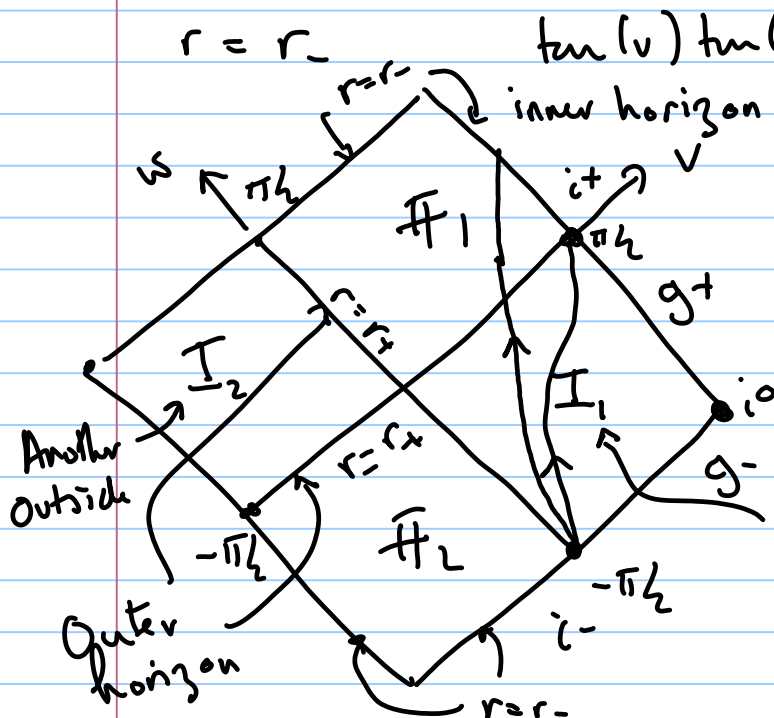 r = r_
tan(v) tan(
r=r-
inner horizon
w
π/2
II₁
i+
v
π/2
g+
r=r+
I₂
I₁
i⁰
Another
outside
r=r+
g-
-π/2
II₂
-π/2
Outer
horizon
i-
r=r-